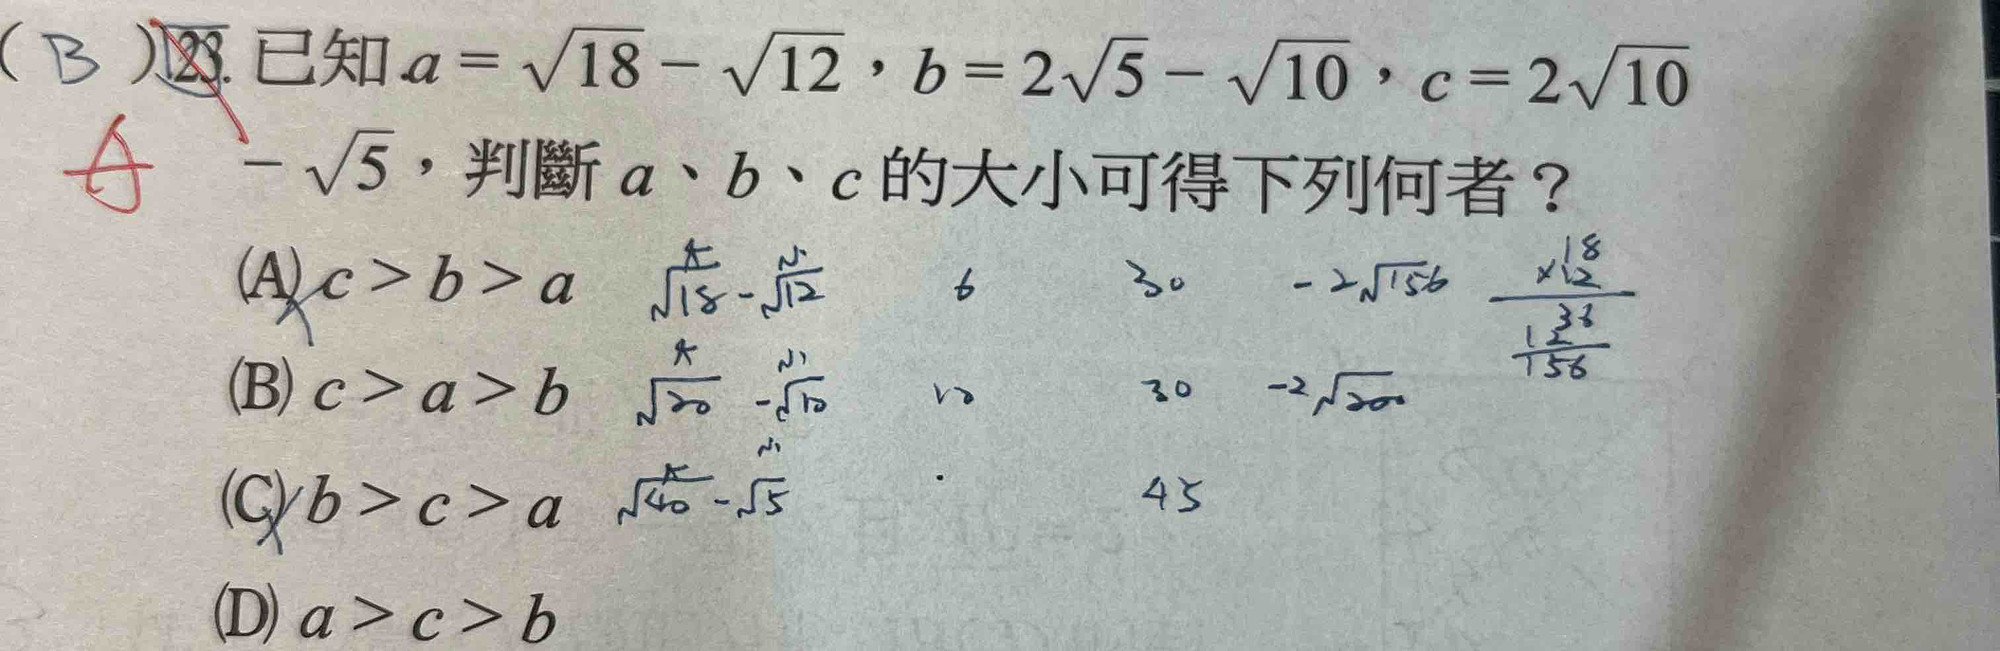 ( B ) 23. 已知 a = √18 − √12，b = 2√5 − √10，c = 2√10
A − √5，判斷 a、b、c 的大小可得下列何者？
(A) c > b > a √18 - √12 6 30 - 2√156 18
×12
36
12
156
(B) c > a > b √20 - √10 10 30 -2√200
(C) b > c > a √40 - √5 45
(D) a > c > b